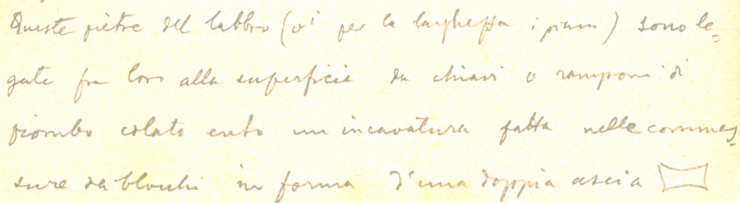 Queste pietre del labbro (vi per la larghezza i piani) sono le=
gate fra loro alla superficie da chiavi o ramponi di
piombo colato entro un incavatura fatta nelle commes=
sure da blocchi in forma d'una doppia ascia